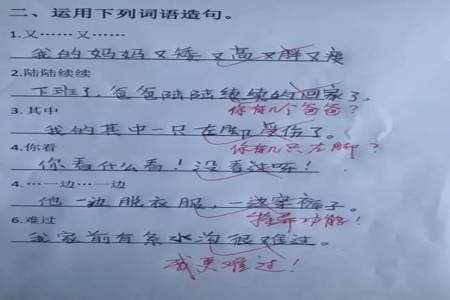 二、运用下列词语造句。
1.又……又……
我的妈妈又矮又高又胖又瘦
2.陆陆续续
下班了,爸爸陆陆续续的回家了。
3.其中 你有几个爸爸?
我的其中一只左脚受伤了。
4.你看 你有几只左脚?
你看什么看!没看过呀!
4.…一边…一边
他一边脱衣服,一边穿裤子。
6.难过 特异功能!
我家前有条水沟很难过。
我更难过!